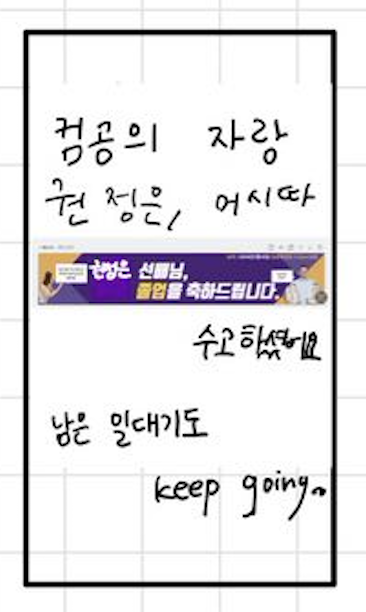 컴공의 자랑
권정은, 어시따
권정은 선배님,
졸업을 축하드립니다.
수고하셨어요
남은 일대기도
keep going~